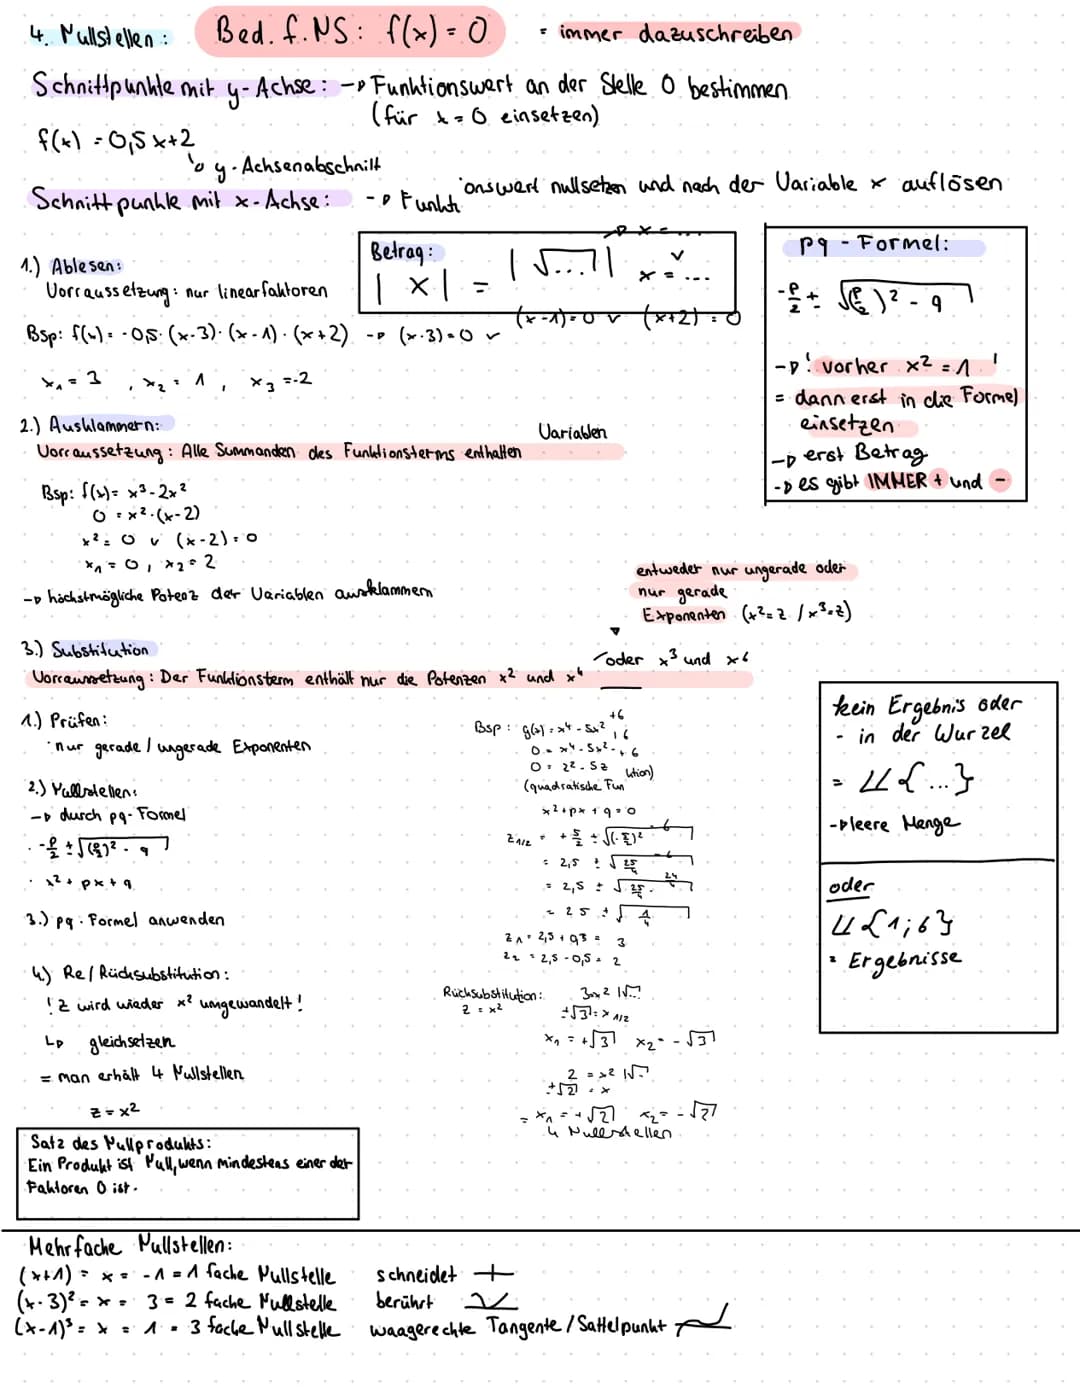 4. Nullstellen: Bed. f. NS: f(x) = 0 = immer dazuschreiben
Schnittpunkte mit y-Achse: → Funktionswert an der Stelle 0 bestimmen
(für x = 0 einsetzen)
f(x) = 0,5x+2
↳ y-Achsenabschnitt
Schnittpunkte mit x-Achse: → Funktionswert nullsetzen und nach der Variable x auflösen
1.) Ablesen:
Vorraussetzung: nur linearfaktoren
Bsp: f(x) = -0,5·(x-3)·(x-1)·(x+2) → (x-3)=0 ∨ (x-1)=0 ∨ (x+2)=0
x₁ = 3, x₂ = 1, x₃ = -2
Betrag:
|x| = |√...| → x = ...
∨
x = ...
pq-Formel:
-p/2 ± √(p/2)² - q
→ ! vorher x² = 1 !
= dann erst in die Formel
einsetzen
→ erst Betrag
→ es gibt IMMER + und -
2.) Ausklammern:
Vorraussetzung: Alle Summanden des Funktionsterms enthalten Variablen
Bsp: f(x) = x³-2x²
0 = x²·(x-2)
x² = 0 ∨ (x-2) = 0
x₁ = 0, x₂ = 2
→ höchstmögliche Potenz der Variablen ausklammern
entweder nur ungerade oder
nur gerade
Exponenten (x²=z / x³=z)
3.) Substitution
Vorraussetzung: Der Funktionsterm enthält nur die Potenzen x² und x⁴ oder x³ und x⁶
1.) Prüfen:
nur gerade / ungerade Exponenten
2.) Nullstellen:
→ durch pq-Formel
· -p/2 ± √(p/2)² - q
· x² + px + q
3.) pq-Formel anwenden
4.) Re/Rücksubstitution:
! z wird wieder x² umgewandelt!
↳ gleichsetzen
= man erhält 4 Nullstellen
z = x²
Bsp: g(x) = x⁴ - 5x² + 6
0 = x⁴ - 5x² + 6
0 = z² - 5z + 6
(quadratische Funktion)
x² + px + q = 0
z₁/₂ = + 5/2 ± √(-5/2)² - 6
= 2,5 ± √25/4 - 6
= 2,5 ± √25/4 - 24/4
= 2,5 ± √1/4
z₁ = 2,5 + 0,5 = 3
z₂ = 2,5 - 0,5 = 2
Rücksubstitution: 3 = x² |√...
z = x²
±√3 = x₁/₂
x₁ = +√3 x₂ = -√3
2 = x² |√...
±√2 = x
= x₁ = +√2 x₂ = -√2
4 Nullstellen
kein Ergebnis oder
- in der Wurzel
= 𝕃{...}
→ leere Menge
oder
𝕃{1;6}
= Ergebnisse
Satz des Nullprodukts:
Ein Produkt ist Null, wenn mindestens einer der
Faktoren 0 ist.
Mehrfache Nullstellen:
(x+1) = x = -1 = 1 fache Nullstelle schneidet
(x-3)² = x = 3 = 2 fache Nullstelle berührt
(x-1)³ = x = 1 = 3 fache Nullstelle waagerechte Tangente/Sattelpunkt